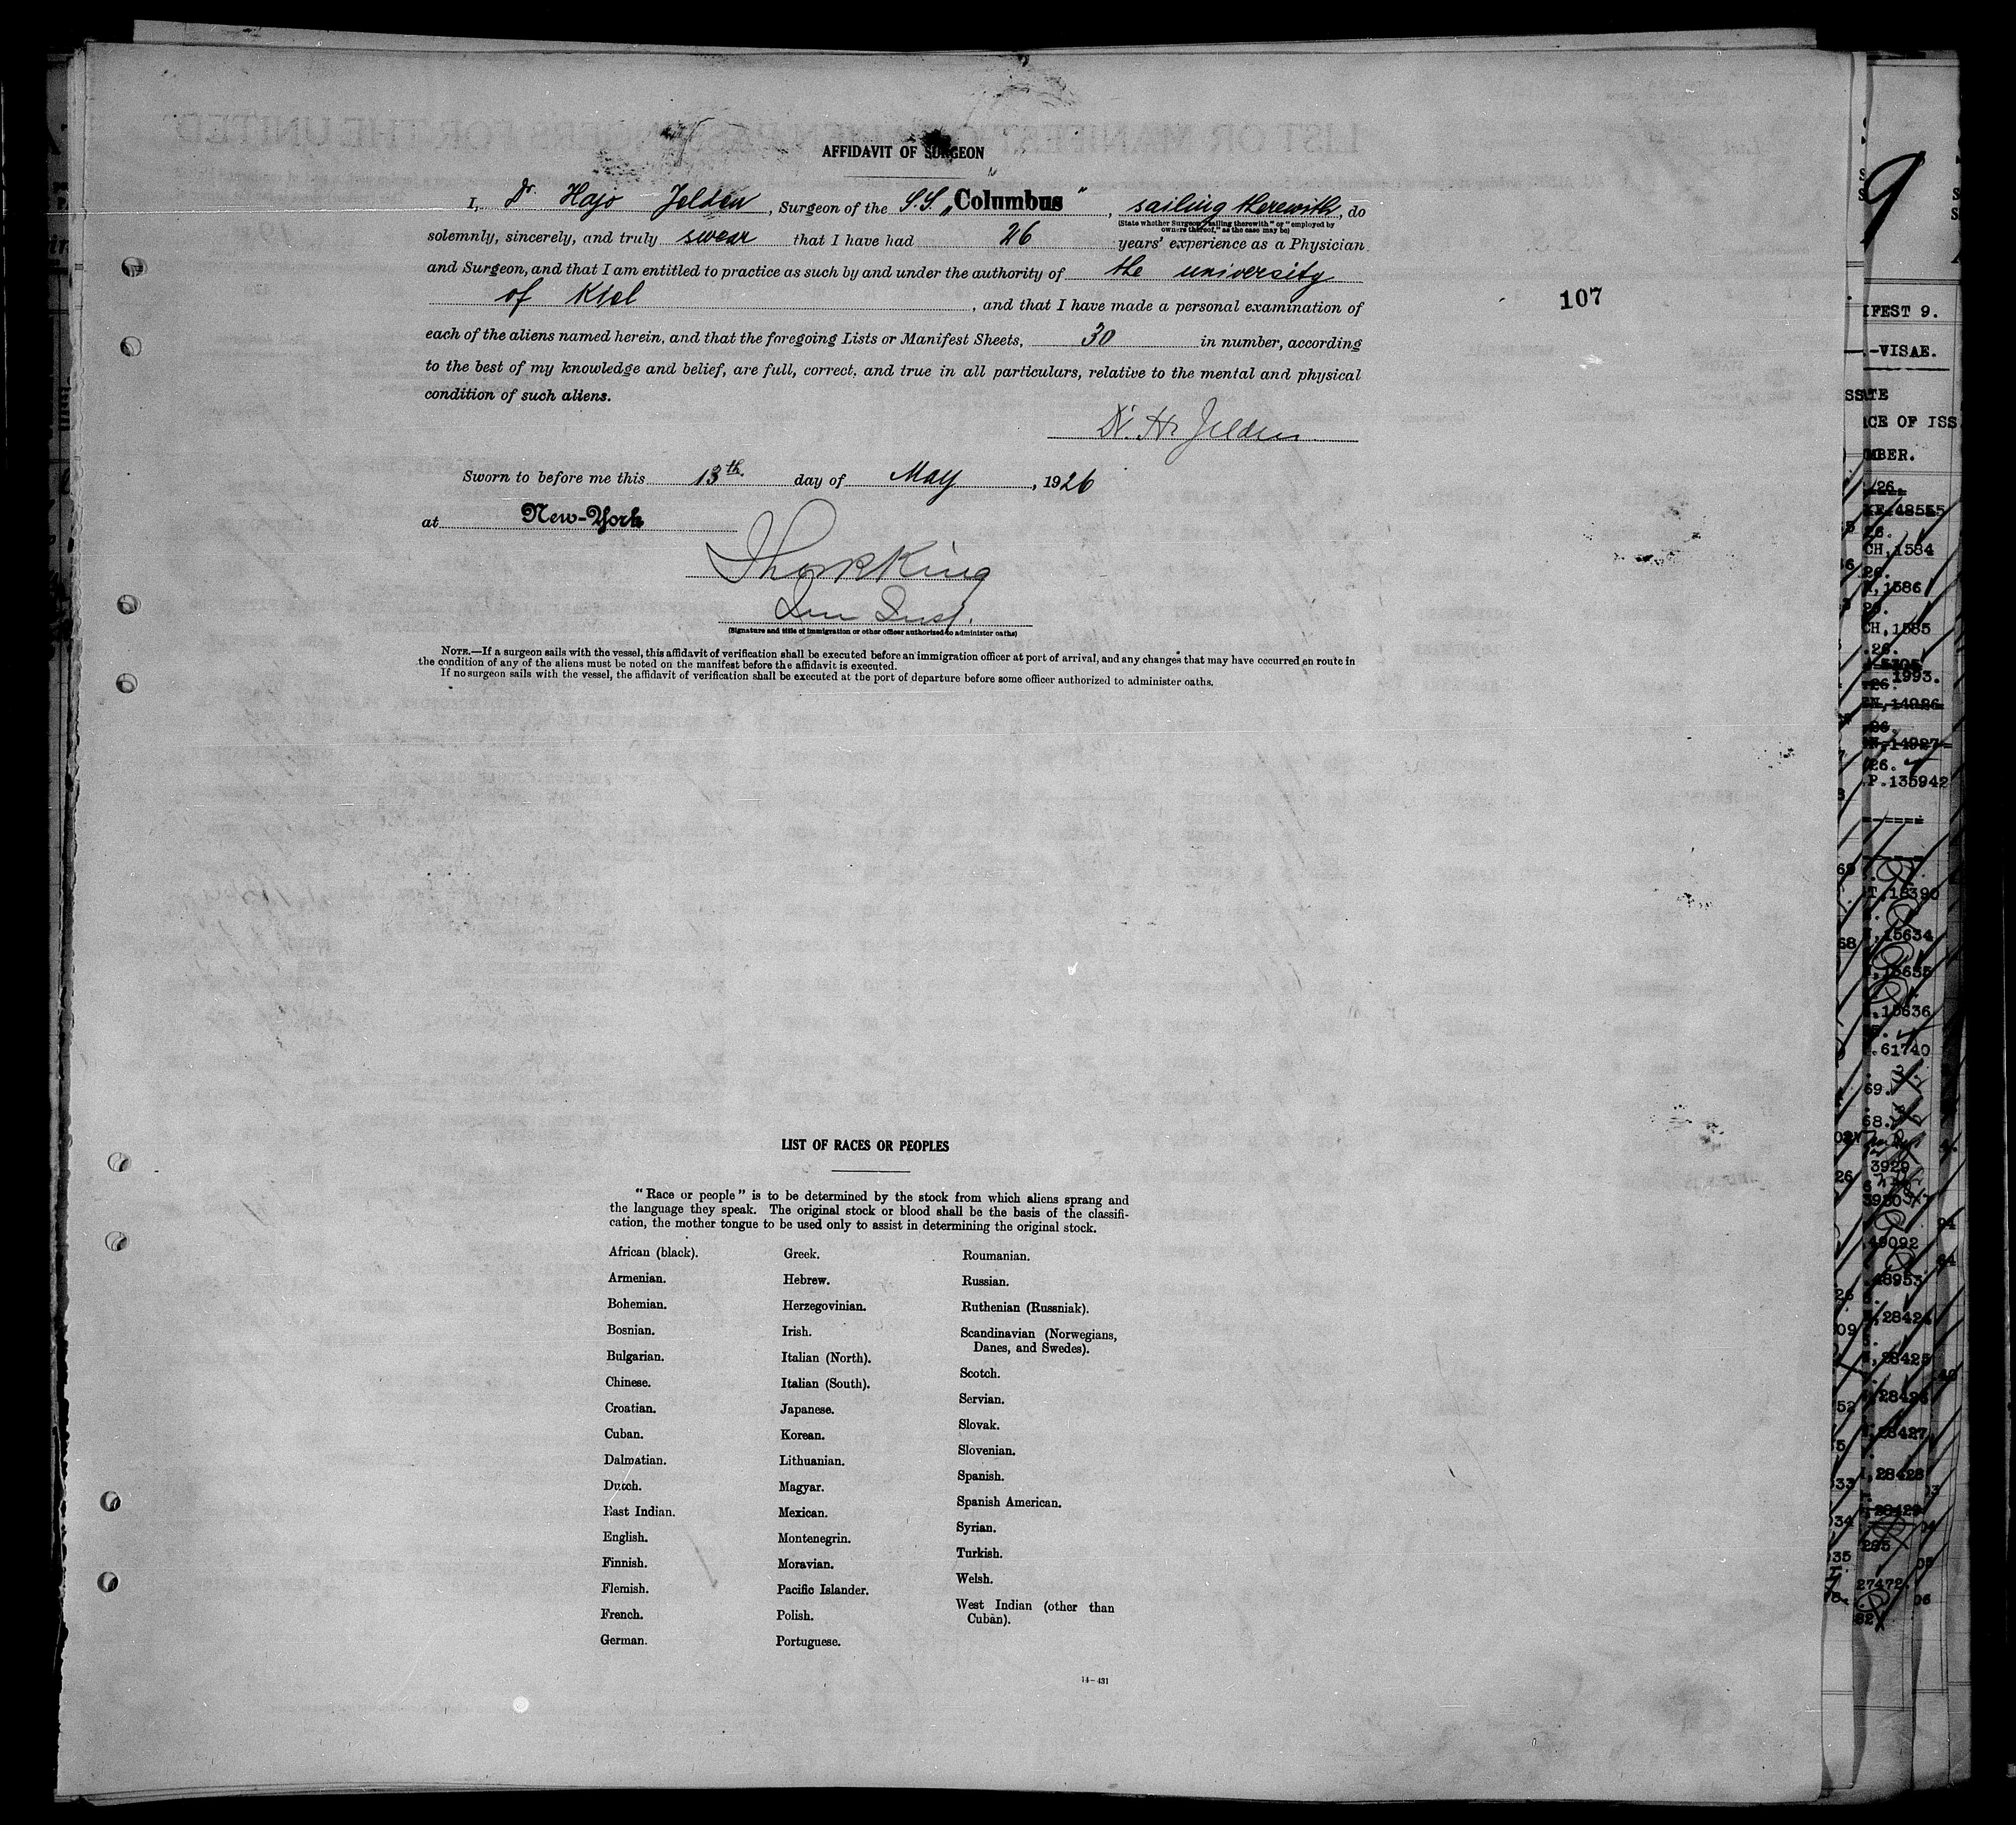 AFFIDAVIT OF SURGEON
I, Dr. Hajo Jelden, Surgeon of the S.S. „Columbus", sailing therewith, do
(State whether Surgeon "sailing therewith" or "employed by
owners thereof," as the case may be)
solemnly, sincerely, and truly swear that I have had 26 years' experience as a Physician
and Surgeon, and that I am entitled to practice as such by and under the authority of the university
of Kiel, and that I have made a personal examination of
107
each of the aliens named herein, and that the foregoing Lists or Manifest Sheets, 30 in number, according
to the best of my knowledge and belief, are full, correct, and true in all particulars, relative to the mental and physical
condition of such aliens.
Dr. H. Jelden
Sworn to before me this 13th day of May, 1926
at New-York
King
(Signature and title of immigration or other officer authorized to administer oaths)
NOTE.—If a surgeon sails with the vessel, this affidavit of verification shall be executed before an immigration officer at port of arrival, and any changes that may have occurred en route in
the condition of any of the aliens must be noted on the manifest before the affidavit is executed.
If no surgeon sails with the vessel, the affidavit of verification shall be executed at the port of departure before some officer authorized to administer oaths.
LIST OF RACES OR PEOPLES
"Race or people" is to be determined by the stock from which aliens sprang and
the language they speak. The original stock or blood shall be the basis of the classifi-
cation, the mother tongue to be used only to assist in determining the original stock.
African (black).
Armenian.
Bohemian.
Bosnian.
Bulgarian.
Chinese.
Croatian.
Cuban.
Dalmatian.
Dutch.
East Indian.
English.
Finnish.
Flemish.
French.
German.
Greek.
Hebrew.
Herzegovinian.
Irish.
Italian (North).
Italian (South).
Japanese.
Korean.
Lithuanian.
Magyar.
Mexican.
Montenegrin.
Moravian.
Pacific Islander.
Polish.
Portuguese.
Roumanian.
Russian.
Ruthenian (Russniak).
Scandinavian (Norwegians,
Danes, and Swedes).
Scotch.
Servian.
Slovak.
Slovenian.
Spanish.
Spanish American.
Syrian.
Turkish.
Welsh.
West Indian (other than
Cuban).
14—431
9
IFEST 9.
—VISAE.
CE OF ISS
MBER.
CH,1584
,1586
CH,1585
1993.
P.135942
,15634
,15635
.15636
.61740
69.
68.
3929
49092
48953
,28424
,28425
28426
,28427
,28428
28429
27472